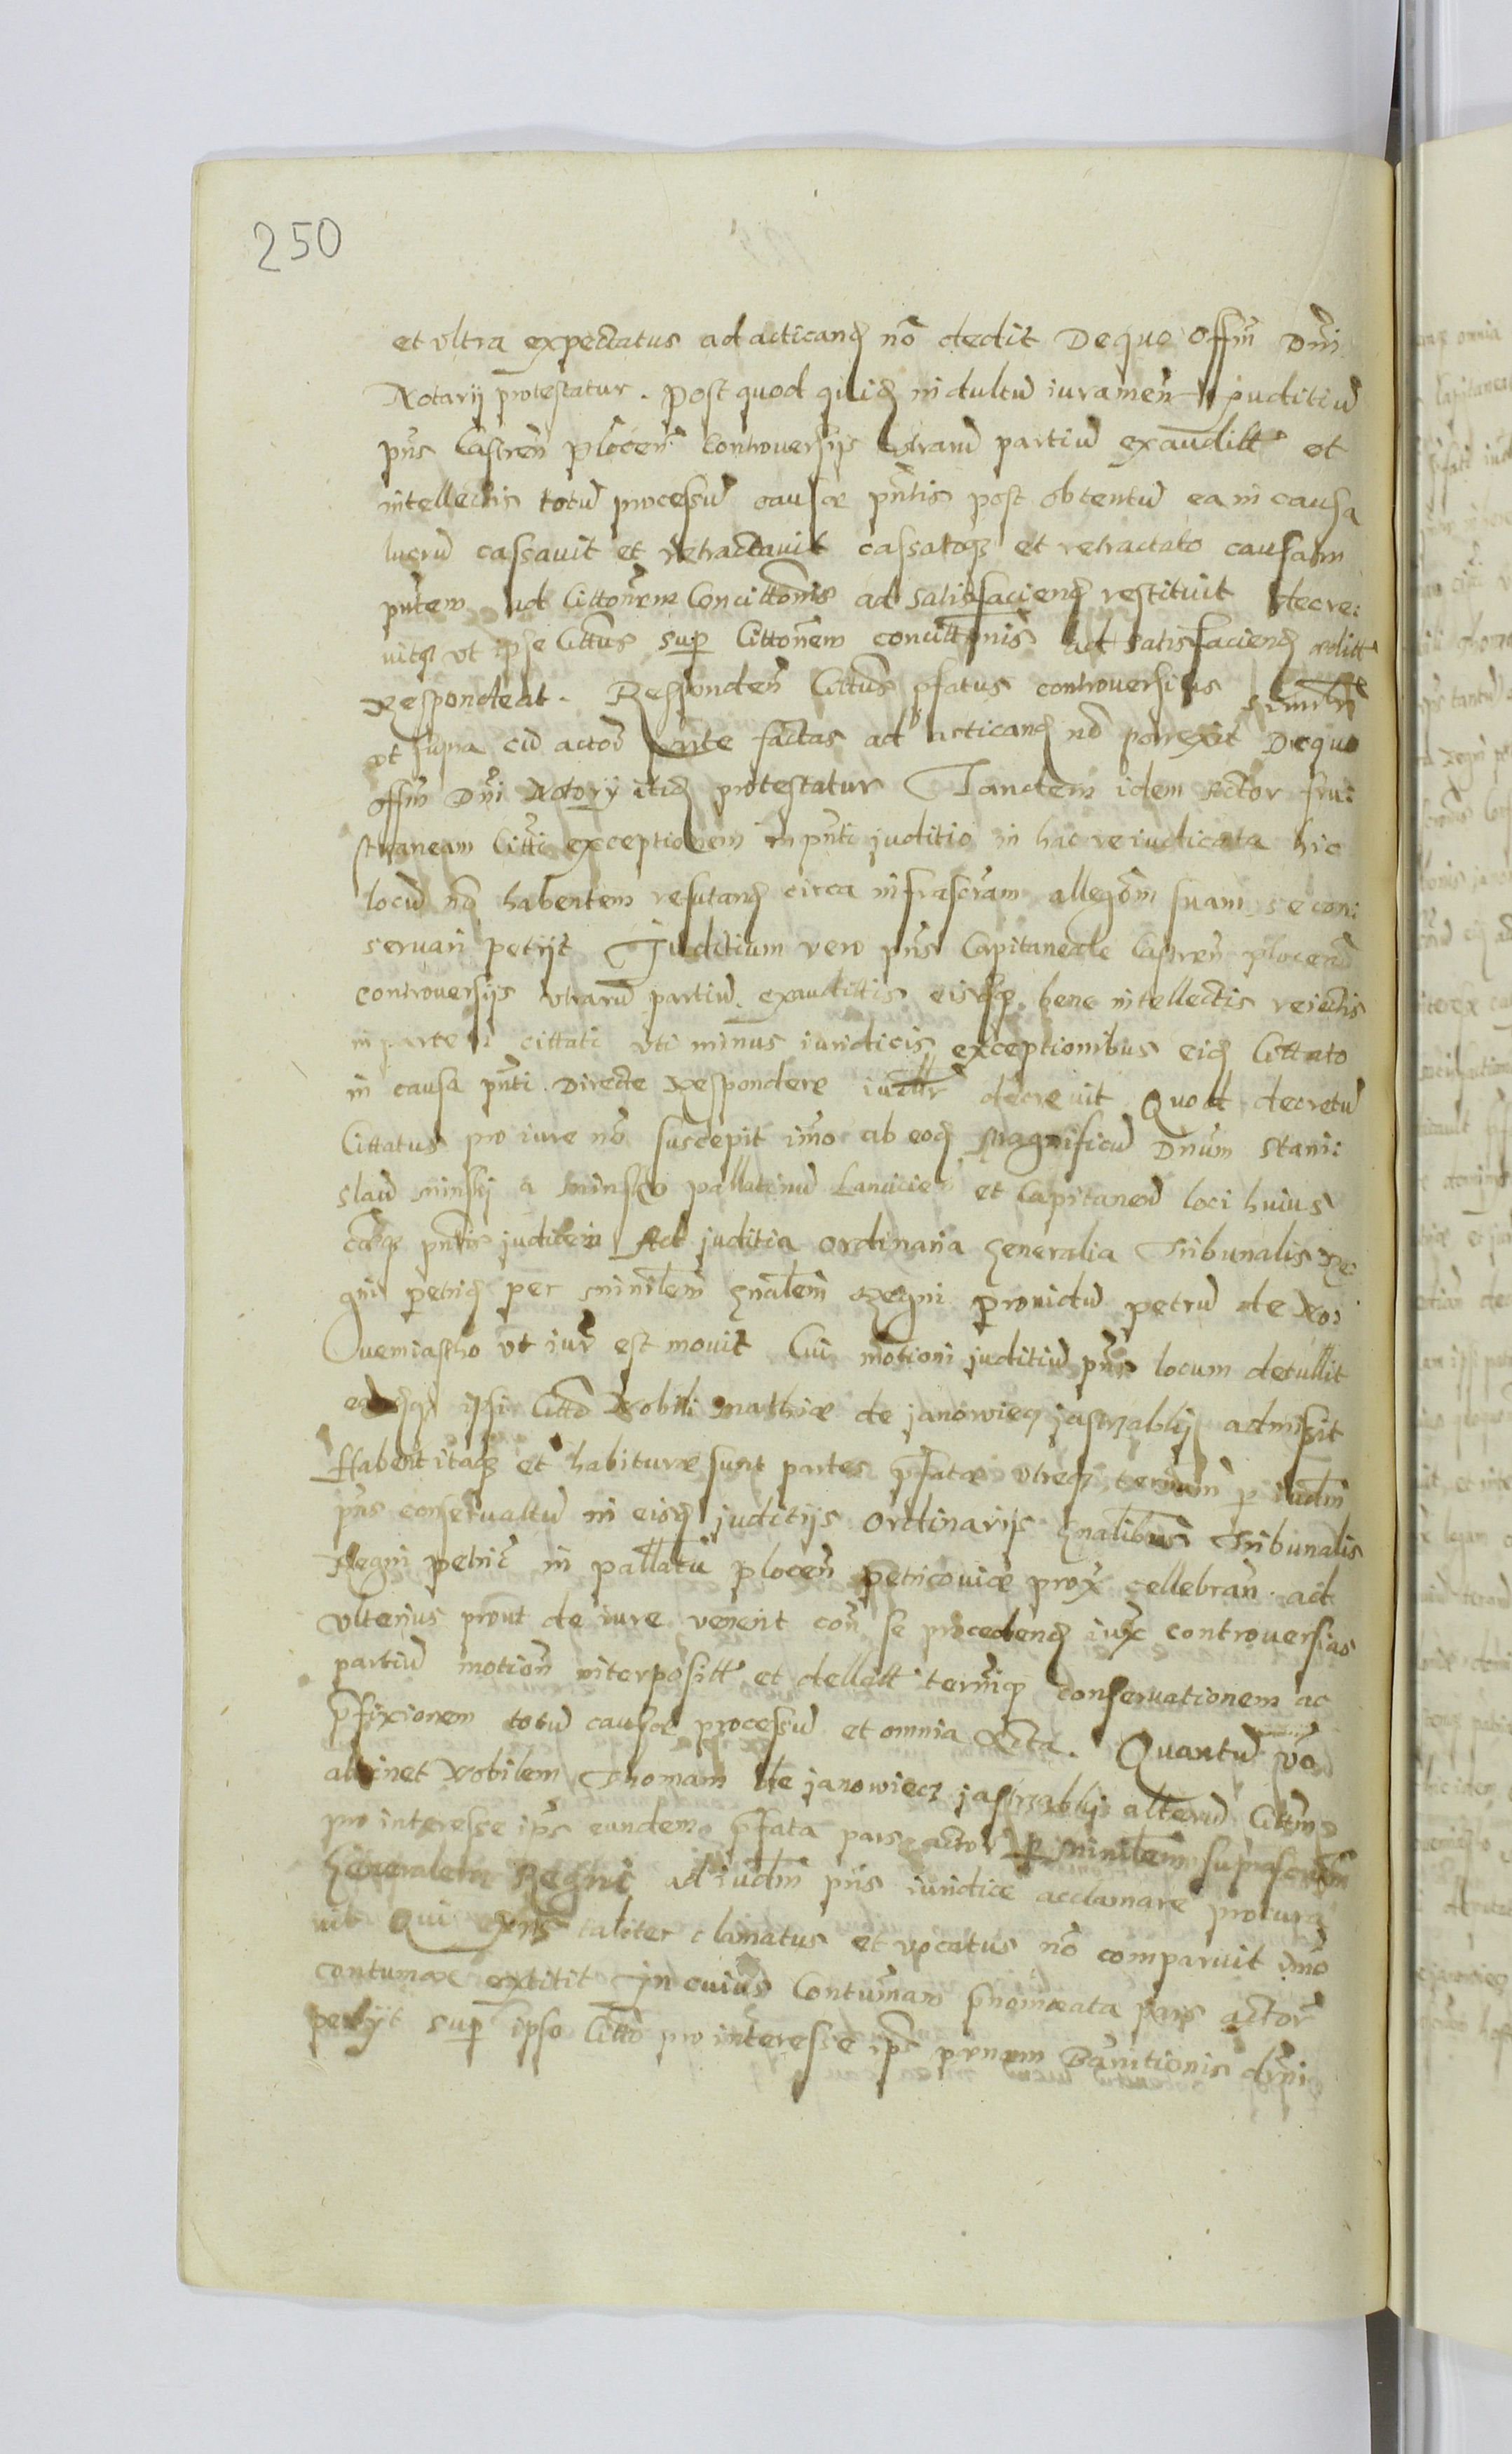 250
et vltra expectatus ad acticand nõ dedit De quo Offm Dñi
Notarij protestatur. Post quod indultũ iuramen Juditiũ
pñs Castreñ Ploceñ controuersijs vtrarũ partiũ exauditt et
intellectis totũ processũ causæ pñtis post obtentũ ea in causa
lucrũ cassauit et retractauit cassatoq et retractato causam
pñtem ad Cittoñem Concittonis ad satisfaciend restituit decre:
uitq vt ipse Cittus sup Cittonem concittonis ad satisfaciend
Respondeat. Respondeñ Cittus pfatus controuersias similr
vt supra cũ actore factas ad acticand nõ porrexit De quo
offm Dñi Notarij itid protestatur Tandem idem Actor fru:
straneam Citti exceptionem in pñti juditio in hac re iudicata hic
locũ nõ habentem refutand circa infrascram allegom suam se con:
seruari petijt Juditium vero pñs Capitaneale Castreñ ploceñ
controuersijs vtrarũ partiũ exauditis eisq bene intellectis reiectis
in partem cittati vti minus iuridicis exceptionibus eid Cittato
in causa pñti Directe Respondere decreuit Quod decretũ
Cittatus pro iure nõ suscepit imo ab eod Magnificũ Dnum Stani:
slaũ Minskij a Minsko pallatinũ Lancicień et Capitaneũ loci huius
pñtis judicem Ad juditia ordinaria Generalia Tribunalis Re:
gni petric per Minilem Gnalem Regni prouidũ petrũ de No:
uemiastho vt iur est mouit Cui motioni juditiũ pñs locum detullit
ipsi Citto Nobili Mathiæ de janowiecz jastrzablij admisit
Habent itaq et habituræ sunt partes pfatæ vtreq terminũ p iudm
pñs conseruatũ in eisd juditijs Ordinarijs Gnalibus Tribunalis
Regni petric in pallatũ ploceñ petricouiæ prox cellebrañ ad
vlterius prout de iure venerit coñ se procedend iux controuersias
partiũ motioñ interpositt et dellatt termiq conseruationem ac
pfixionem totũ causæ processũ et omnia Acta. Quantũ vo
attinet Nobilem Thomam de janowiecz jastrzablij alterũ Cittm
pro interesse ips eundem pfata pars actor p Minilem suprascrm
Generalem Regni ad iudm pñs iuridice acclamare procura
uit Qui taliter clamatus et vocatus nõ comparuit imo
contumax extitit In cuius Contumam pnominata pars actor
petijt sup ipso Citto pro interesse ips pænam Banitionis